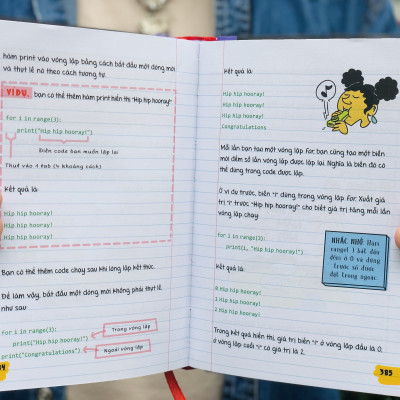 hàm print vào vòng lặp bằng cách bắt đầu một dòng mới
và thụt lề nó theo cách tương tự.
VÍ DỤ, bạn có thể thêm hàm print hiển thị "Hip hip hooray!"
for i in range(3):
print("hip hip hooray!")
Biến code bạn muốn lặp lại
Thụt vào 1 tab (4 khoảng cách)
Kết quả là:
Hip hip hooray!
Hip hip hooray!
Hip hip hooray!
Bạn có thể thêm code chạy sau khi lòng lặp kết thúc.
Để làm vậy, bắt đầu một dòng mới không phải thụt,
như sau
for i in range(3):
print("Hip hip hooray!")
print("Congratulations")
Trong vòng lặp
Ngoài vòng lặp
Kết quả là:
Hip hip hooray!
Hip hip hooray!
Hip hip hooray!
Congratulations
Mỗi lần bạn tạo một vòng lặp for, bạn cũng tạo một biến
mới đếm số lần vòng lặp được lặp lại. Nghĩa là biến đó có
thể dùng trong code được lặp.
Ở ví dụ trước, biến "i" dùng trong vòng lặp for. Xuất giá
trị "i" trước "Hip hip hooray!" cho biết giá trị tăng mỗi lần
vòng lặp chạy
for i in range(3):
print(i, "Hip hip hooray!")
NHẮC NHỞ Hàm
range( ) bắt
đầu ở 0 và dừng
trước số được
đặt trong ngoặc.
Kết quả là:
0 Hip hip hooray!
1 Hip hip hooray!
2 Hip hip hooray!
Trong kết quả hiển thị, giá trị biến "i" ở vòng lặp đầu là 0,
ở vòng lặp cuối "i" có giá trị là 2.
385